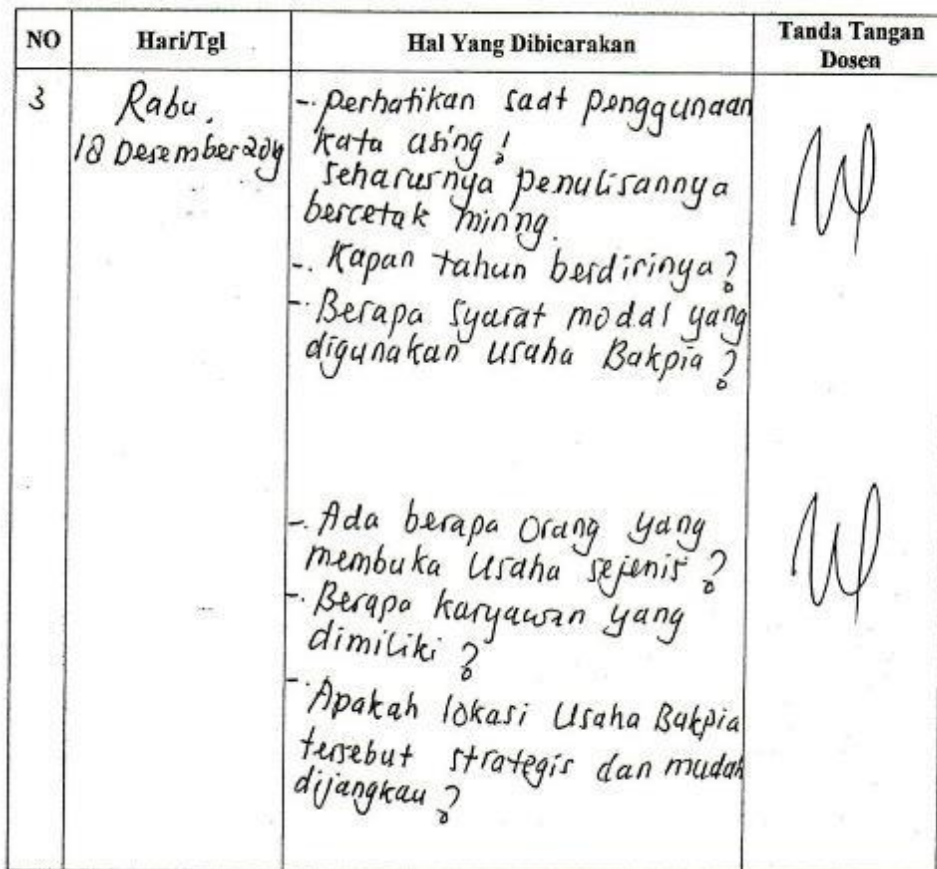 NO Hari/Tgl Hal Yang Dibicarakan Tanda Tangan Dosen
3 Rabu,
18 Desember
- perhatikan saat penggunaan
kata asing!
seharusnya penulisannya
bercetak miring.
- Kapan tahun berdirinya?
- Berapa syarat modal yang
digunakan Usaha Bakpia?
- Ada berapa orang yang
membuka Usaha sejenis?
- Berapa karyawan yang
dimiliki?
- Apakah lokasi Usaha Bakpia
tersebut strategis dan mudah
dijangkau?